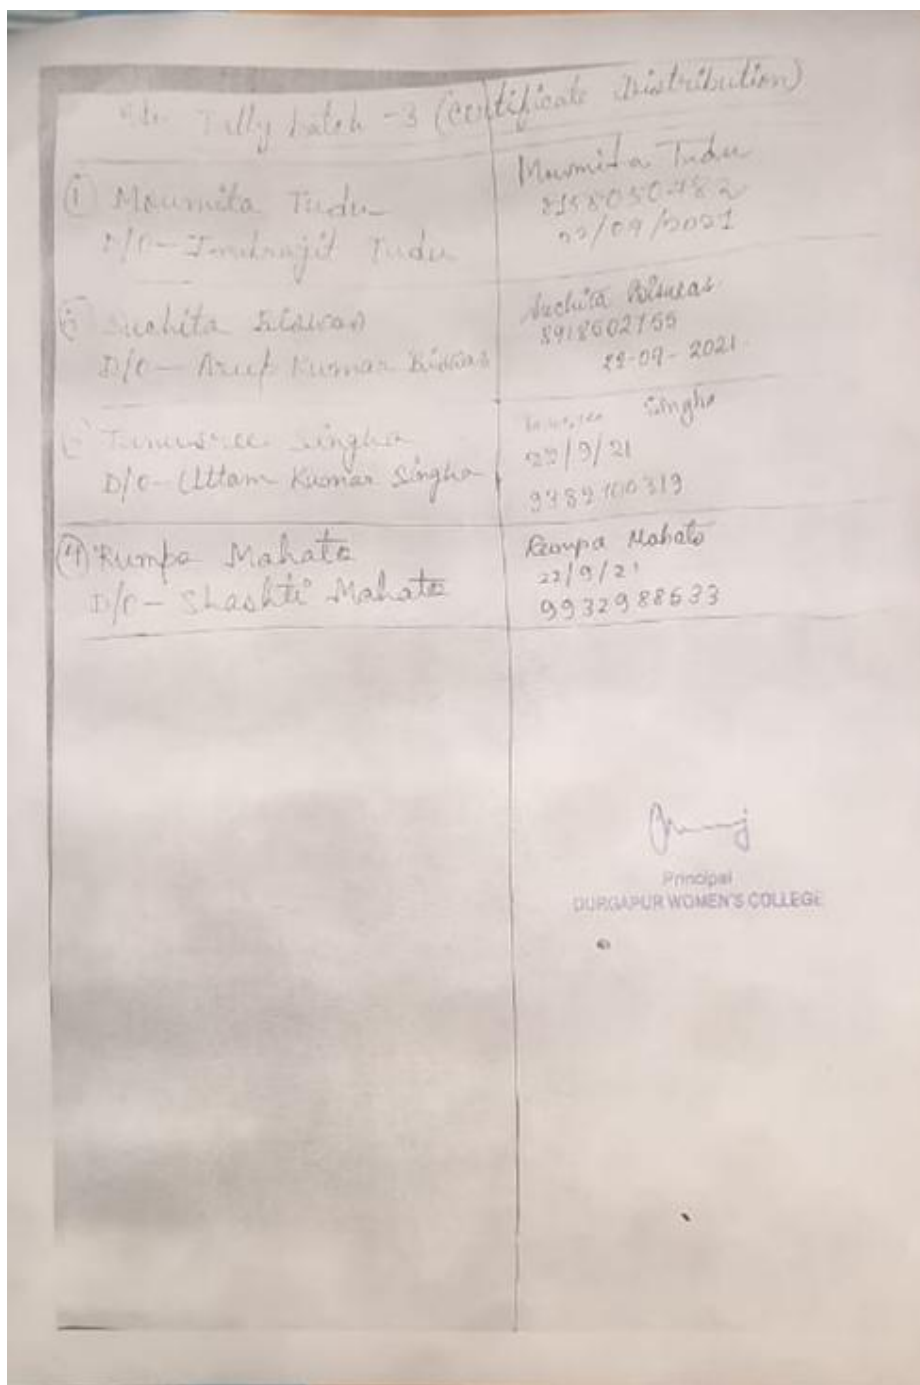 Tally batch - 3 (Certificate Distribution)
① Moumita Tudu
D/O - Indrajit Tudu
Moumita Tudu
22/09/2021
Suchita Biswas
D/O - Arup Kumar Biswas
Suchita Biswas
8918602755
22-09-2021
Tanusree Singha
D/O - Uttam Kumar Singha
Singha
22/9/21
④ Rumpa Mahato
D/O - Shashti Mahato
Rumpa Mahato
22/9/21
9932988533
Principal
DURGAPUR WOMEN'S COLLEGE